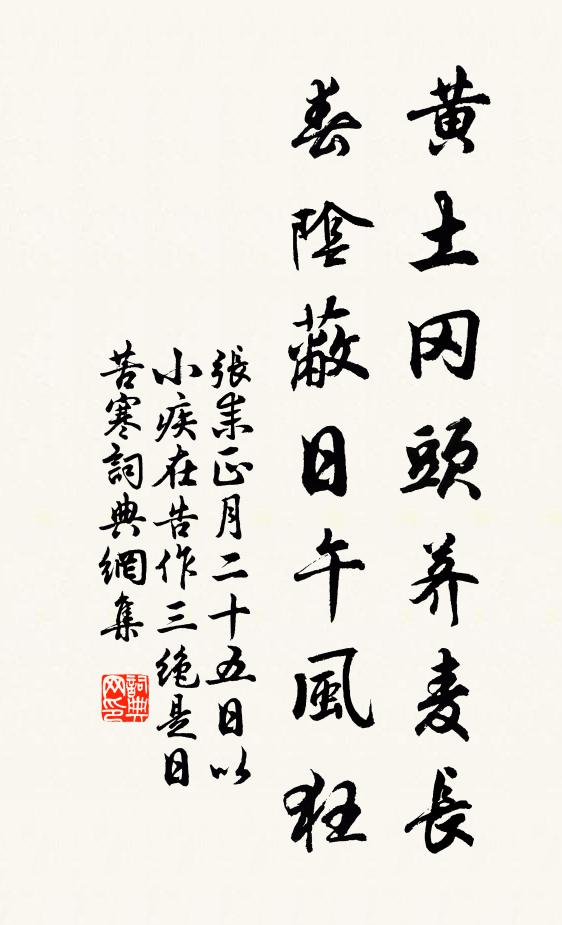 黄土冈頭荞麦長
春陰蔽日午風狂
張耒正月二十五日以
小疾在告作三绝是日
苦寒詞典網集
詞典网印